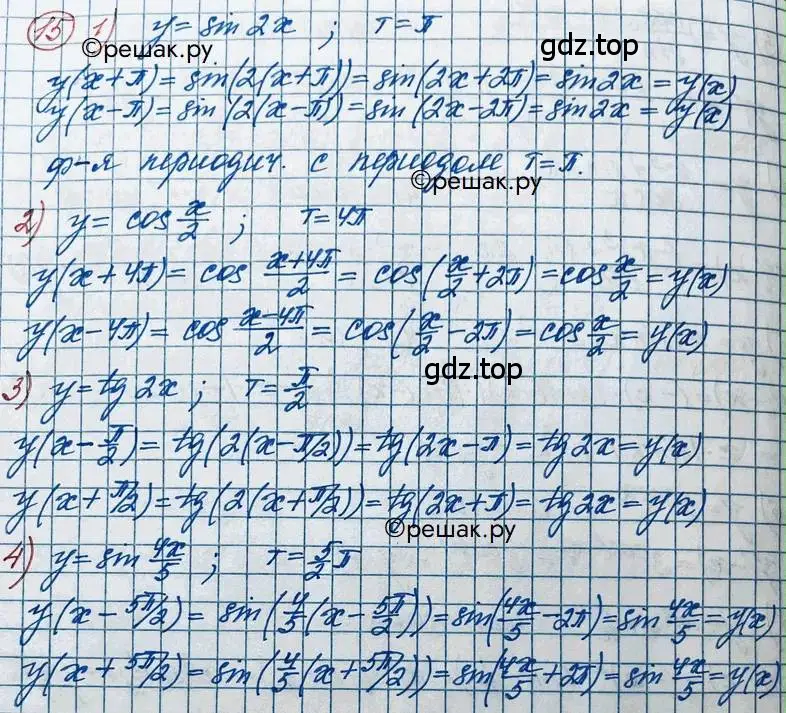 15 1) y = sin 2x ; T = π
©решак.ру
gdz.top
y(x+π) = sin(2(x+π)) = sin(2x+2π) = sin2x = y(x)
y(x-π) = sin (2(x-π)) = sin (2x-2π) = sin2x = y(x)
ф-я периодич. с периодом T=π.
©решак.ру
2) y = cos x/2 ; T = 4π
y(x+4π) = cos (x+4π)/2 = cos(x/2+2π) = cos x/2 = y(x)
y(x-4π) = cos (x-4π)/2 = cos(x/2-2π) = cos x/2 = y(x)
gdz.top
3) y = tg 2x ; T = π/2
y(x-π/2) = tg(2(x-π/2)) = tg(2x-π) = tg 2x = y(x)
y(x+π/2) = tg(2(x+π/2)) = tg(2x+π) = tg2x = y(x)
©решак.ру
4) y = sin 4x/5 ; T = 5/2 π
y(x-5π/2) = sin(4/5(x-5π/2)) = sin(4x/5-2π) = sin 4x/5 = y(x)
y(x+5π/2) = sin(4/5(x+5π/2)) = sin(4x/5+2π) = sin 4x/5 = y(x)